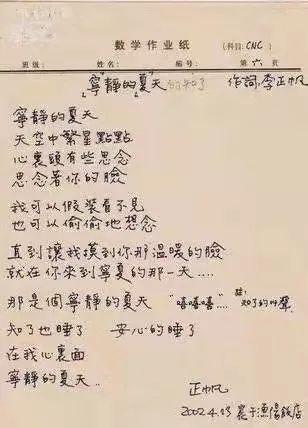 数学作业纸
(科目: CNC)
班级: 姓名: 编号: 第 六 页
「寧靜的夏」天 的知了 作詞:李正帆
寧靜的夏天
天空中繁星點點
心裏頭有些思念
思念著你的臉
我可以假裝看不見
也可以偷偷地想念
直到讓我摸到你那溫暖的臉
就在你來到寧夏的那一天....
那是個寧靜的夏天 "嘻嘻嘻"... 註: 知了的叫聲
知了也睡了 安心的睡了
在我心裏面
寧靜的夏天..
正帆
2002.4.13 寫于漁陽飯店